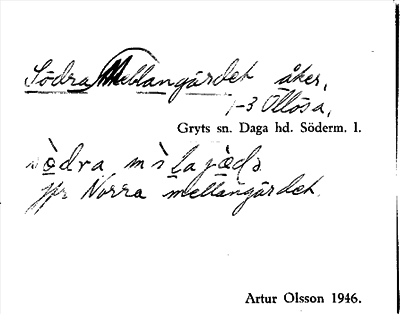 Södra Mellangärdet åker,
1-3 Ullösa,
Gryts sn. Daga hd. Söderm. l.
jfr Norra mellangärdet.
Artur Olsson 1946.